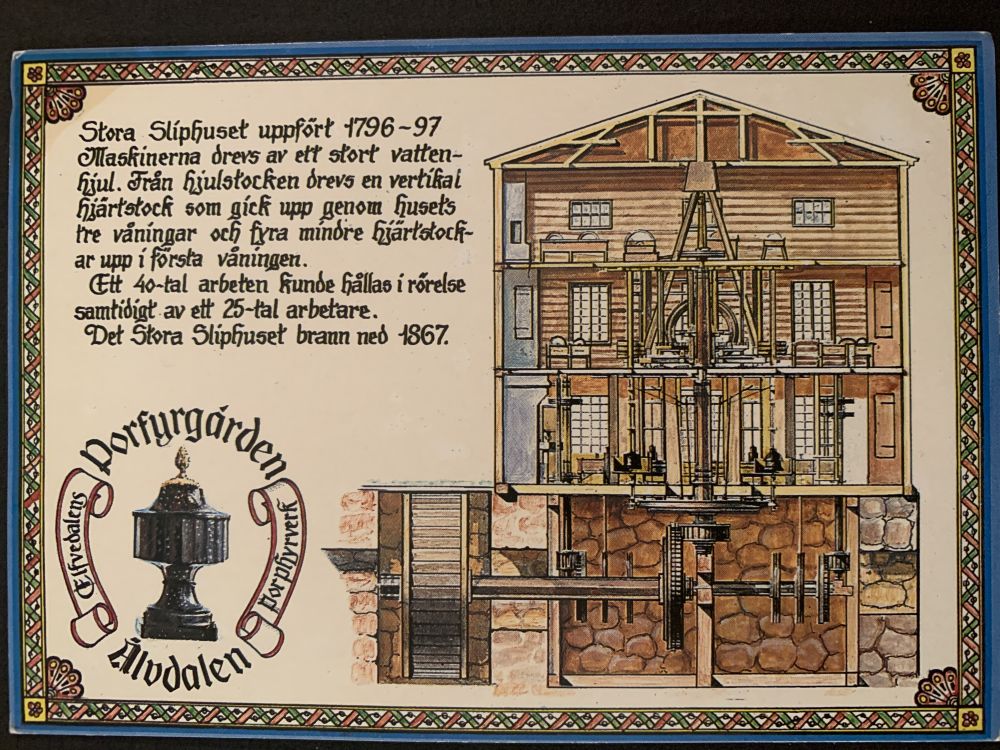 Stora Sliphuset uppfört 1796-97
Maskinerna drevs av ett stort vatten-
hjul. Från hjulstocken drevs en vertikal
hjärtstock som gick upp genom husets
tre våningar och fyra mindre hjärtstock-
ar upp i första våningen.
Ett 40-tal arbeten kunde hållas i rörelse
samtidigt av ett 25-tal arbetare.
Det Stora Sliphuset brann ned 1867.
Porfyrgården
Elfvedalens
Porphyrverk
Älvdalen